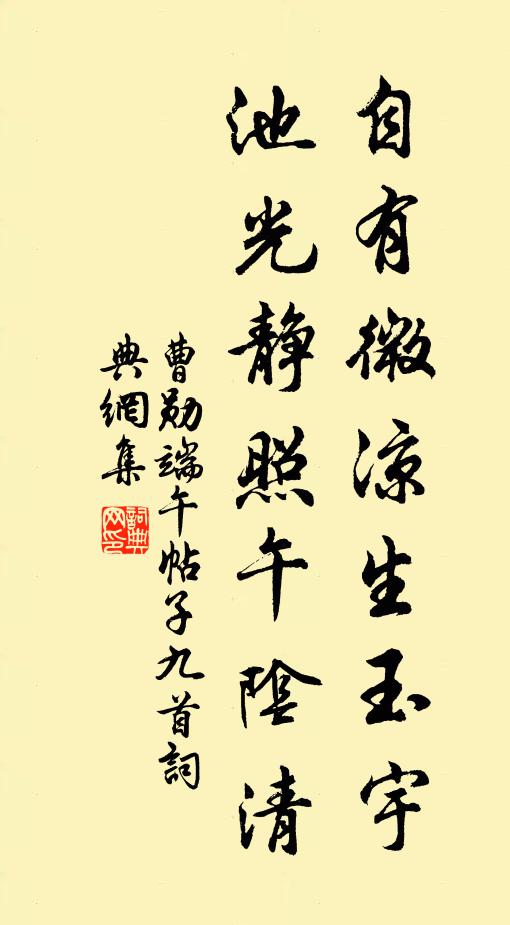 自有微凉生玉宇
池光静照午陰清
曹勛端午帖子九首詞
典網集
詞典網印